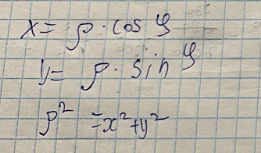 x = ρ · cos φ
y = ρ · sin φ
ρ² = x² + y²